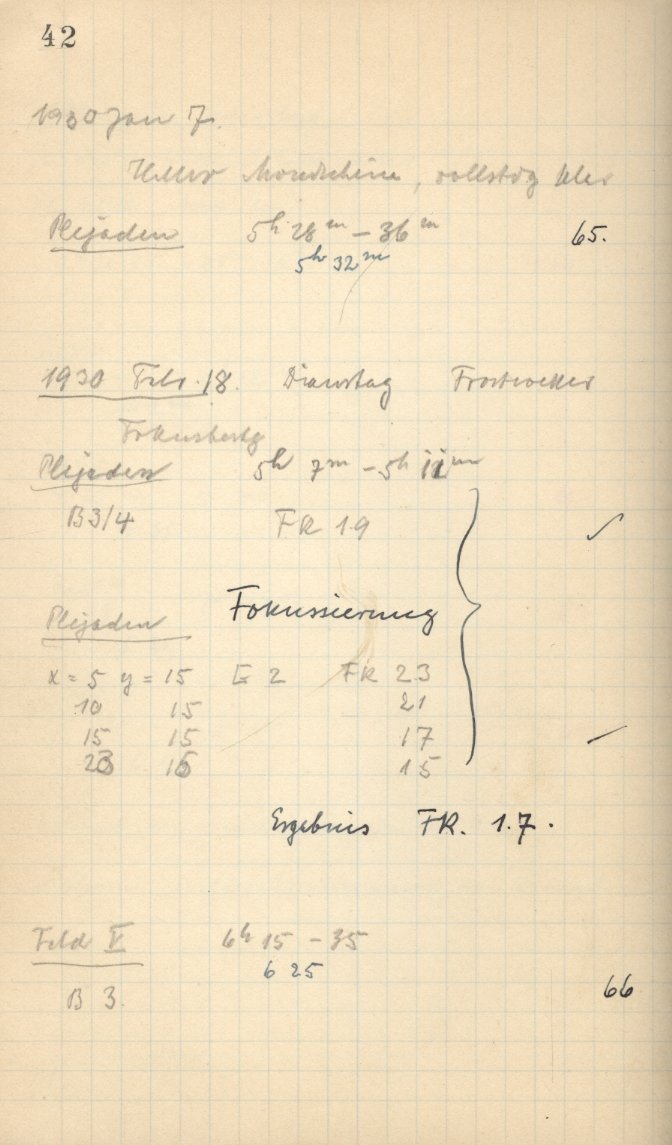 42
1930 Jan 7.
Heller Mondschein, vollstdg klar
Plejaden 5h 28m – 36m 65.
5h 32m
1930 Febr. 18. Dienstag Frostwetter
Plejaden 5h 7m – 5h 11m
B3/4 FR 19 ✓
Plejaden Fokussierung
x = 5 y = 15 E 2 FR 23
10 15 21
15 15 17
15
Ergebnis FR. 1.7.
Feld V 6h 15 – 35
6 25
B 3. 66